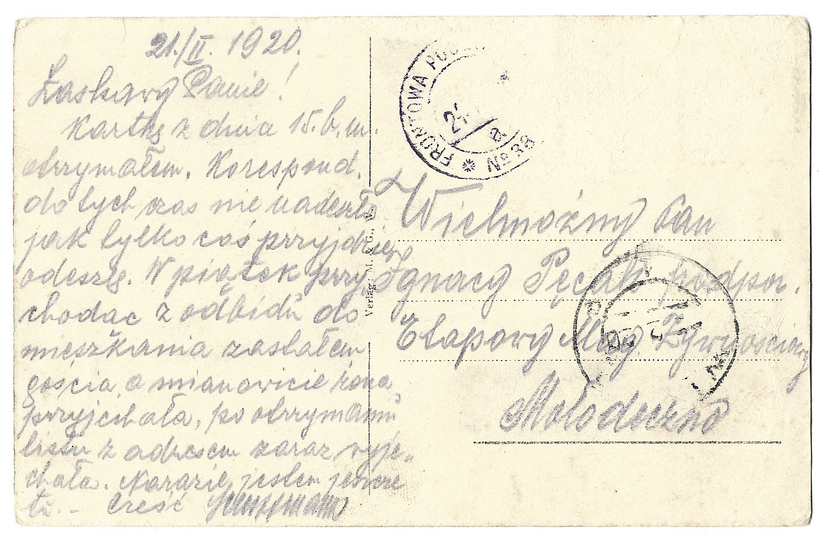 21./II. 1920.
Łaskawy Panie!
Kartkę z dnia 15. b. m.
otrzymałem. Korespond.
do tych czas nie nadeszła
jak tylko coś przyjdzie
odeszę. W piątek przy
chodąc z odbidu do
mieszkania zastałem
gościa a mianowicie żona
przyjchała, po otrzymaniu
listu z adresem zaraz wyje-
chała. Narazie jestem jeszcze
tu. – Cześć
Verlag: M. & G.,
FRONTOWA
No 38
Wielmożny Pan
Ignacy Pęcak podpor.
Etapowy Mag. Żywnościowy
Mołodeczno